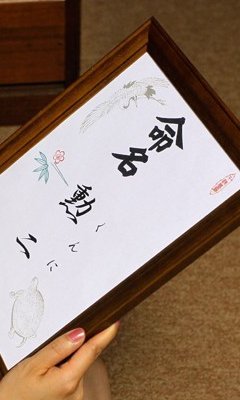 命名
勲二
くんに